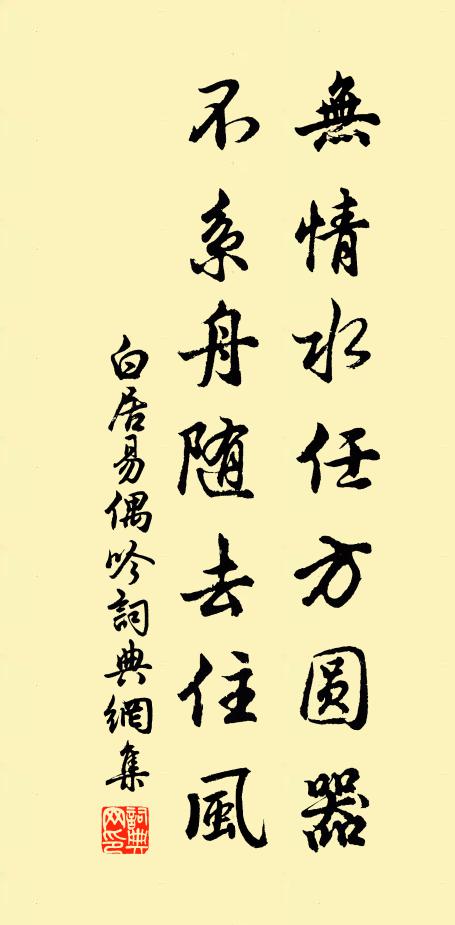 無情水任方圆器
不系舟随去住風
白居易偶吟詞典網集
詞典网印